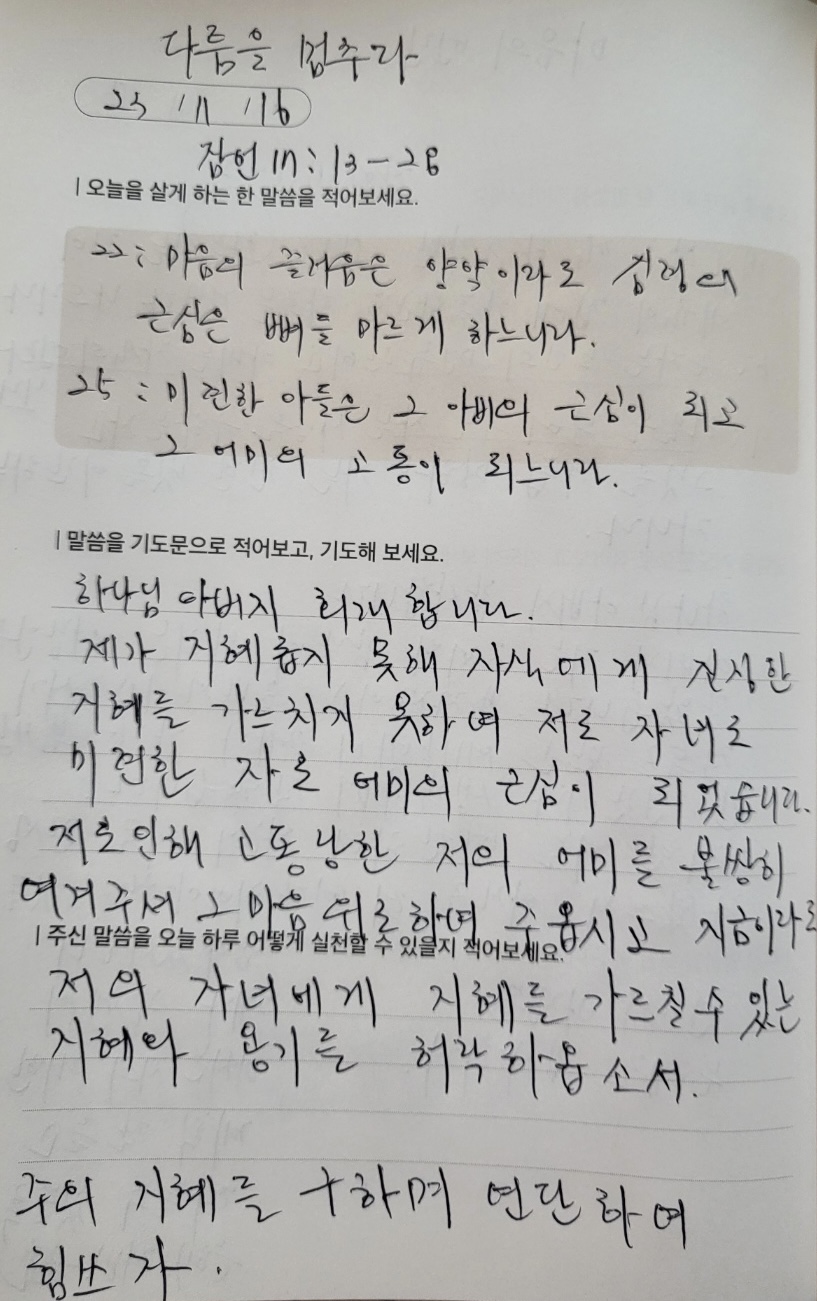 다툼을 멈추라
25 / 11 / 16
잠언 17 : 13 - 28
| 오늘을 살게 하는 한 말씀을 적어보세요.
22 : 마음의 즐거움은 양약이라도 심령의
근심은 뼈를 마르게 하느니라.
25 : 미련한 아들은 그 아비의 근심이 되고
그 어미의 고통이 되느니라.
| 말씀을 기도문으로 적어보고, 기도해 보세요.
하나님 아버지 회개합니다.
제가 지혜롭지 못해 자식에게 진정한
지혜를 가르치지 못하여 저로 자녀로
미련한 자로 어미의 근심이 되었습니다.
저로인해 고통당한 저의 어미를 불쌍히
여겨주셔 그 마음 위로하여 주옵시고 지금이라도
| 주신 말씀을 오늘 하루 어떻게 실천할 수 있을지 적어보세요.
저의 자녀에게 지혜를 가르칠 수 있는
지혜와 용기를 허락하옵소서.
주의 지혜를 구하며 연단하여
힘쓰자.